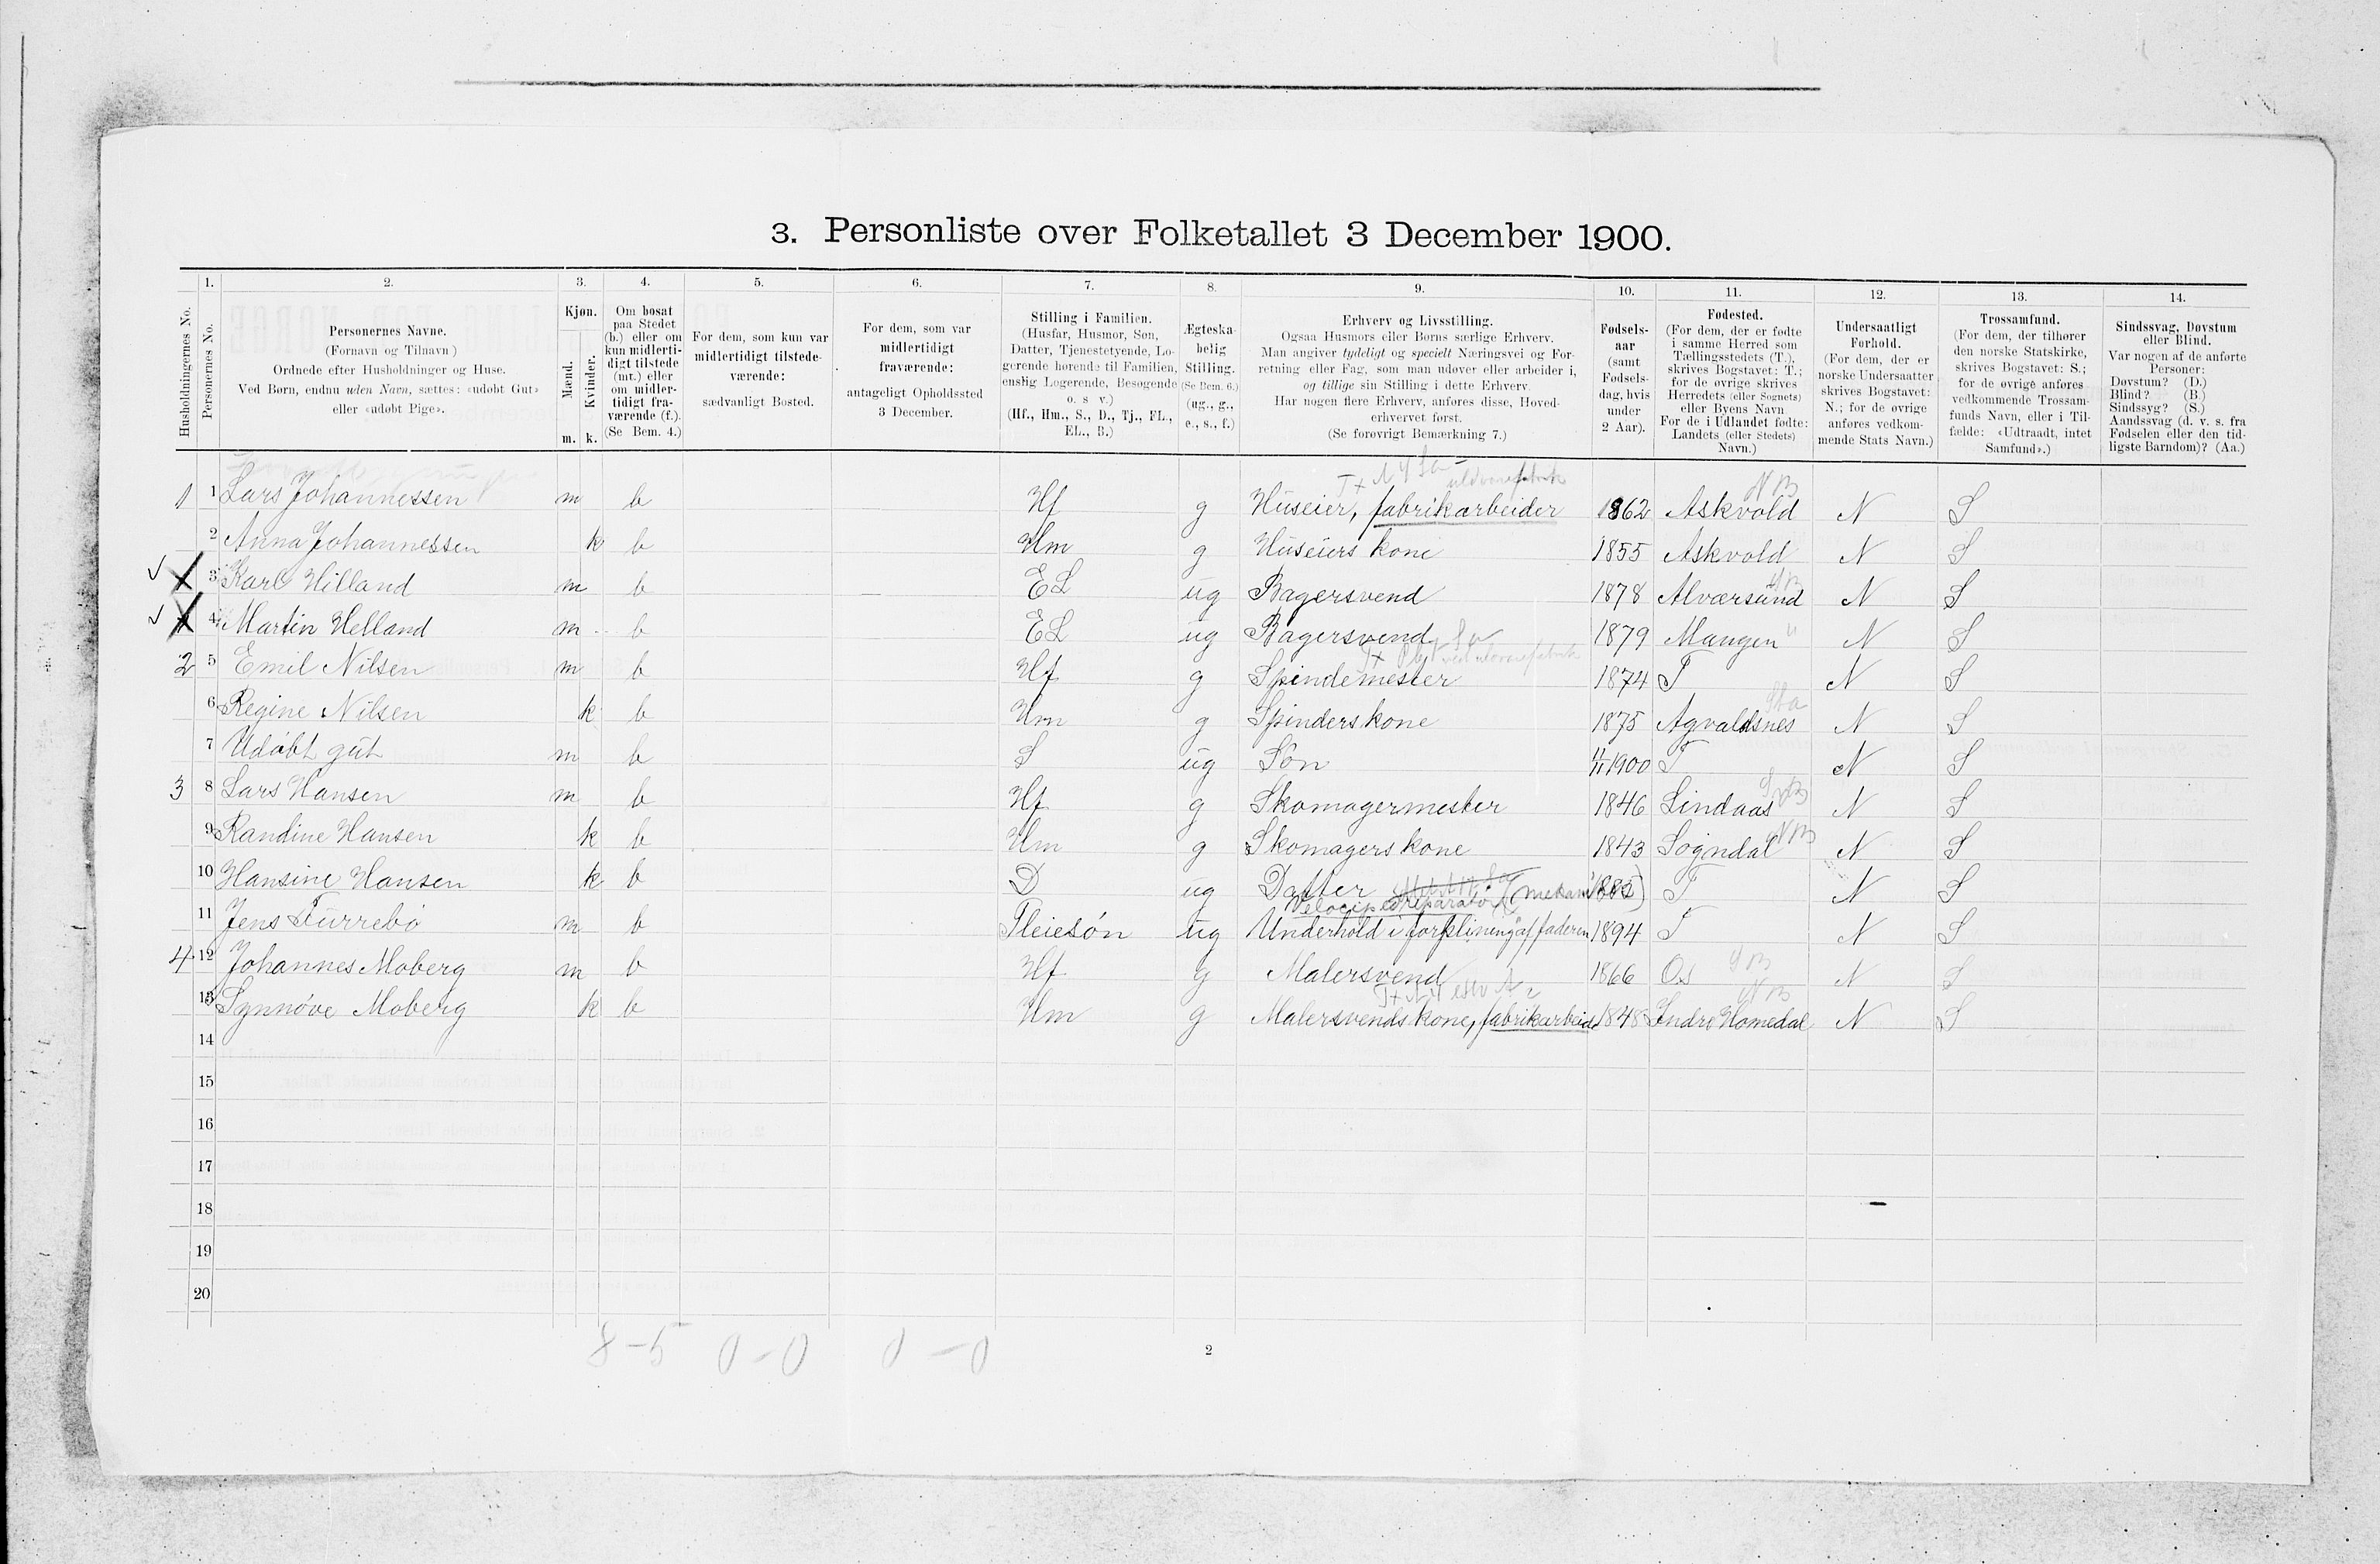 3. Personliste over Folketallet 3 December 1900.
Husholdningernes No.
1. Personernes No.
2. Personernes Navne.
(Fornavn og Tilnavn)
Ordnede efter Husholdninger og Huse.
Ved Børn, endnu uden Navn, sættes: «udøbt Gut»
eller «udøbt Pige».
3. Kjøn.
Mænd. m.
Kvinder. k.
4. Om bosat
paa Stedet
(b.) eller om
kun midlerti-
digt tilstede
(mt.) eller
om midler-
tidigt fra-
værende (f.).
(Se Bem. 4.)
5. For dem, som kun var
midlertidigt tilstede-
værende:
sædvanligt Bosted.
6. For dem, som var
midlertidigt
fraværende:
antageligt Opholdssted
3 December.
7. Stilling i Familien.
(Husfar, Husmor, Søn,
Datter, Tjenestetyende, Lo-
gerende hørende til Familien,
enslig Logerende, Besøgende
o. s v.)
(Hf., Hm., S., D., Tj., FL.,
EL., B.)
8. Ægteska-
belig
Stilling.
(Se Bem. 6.)
(ug., g.,
e., s., f.)
9. Erhverv og Livsstilling.
Ogsaa Husmors eller Børns særlige Erhverv.
Man angiver tydeligt og specielt Næringsvei og For-
retning eller Fag, som man udøver eller arbeider i,
og tillige sin Stilling i dette Erhverv.
Har nogen flere Erhverv, anføres disse, Hoved-
erhvervet først.
(Se forøvrigt Bemærkning 7.)
10. Fødsels-
aar
(samt
Fødsels-
dag, hvis
under
2 Aar).
11. Fødested.
(For dem, der er fødte
i samme Herred som
Tællingsstedets (T.),
skrives Bogstavet: T.;
for de øvrige skrives
Herredets (eller Sognets)
eller Byens Navn.
For de i Udlandet fødte:
Landets (eller Stedets)
Navn.)
12. Undersaatligt
Forhold.
(For dem, der er
norske Undersaatter
skrives Bogstavet:
N.; for de øvrige
anføres vedkom-
mende Stats Navn.)
13. Trossamfund.
(For dem, der tilhører
den norske Statskirke,
skrives Bogstavet: S.;
for de øvrige anføres
vedkommende Trossam-
funds Navn, eller i Til-
fælde: «Udtraadt, intet
Samfund».)
14. Sindssvag, Døvstum
eller Blind.
Var nogen af de anførte
Personer:
Døvstum? (D.)
Blind? (B.)
Sindssyg? (S.)
Aandssvag (d. v. s. fra
Fødselen eller den tid-
ligste Barndom)? (Aa.)
uldvarefabrik
1 1 Lars Johannessen m b Hf g Huseier, fabrikarbeider 1862 Askvold N S
2 Anna Johannessen k b Hm g Huseiers kone 1855 Askvold N S
3 Karl Hilland m b EL ug Bagersvend 1878 Alværsund N S
4 Martin Helland m b EL ug Bagersvend 1879 Mangen N S
2 5 Emil Nilsen m b Hf g Spindemester 1874 T N S
6 Regine Nilsen k b Hm g Spinders kone 1875 Agvaldsnes N S
7 Udøbt gut m b S ug Søn 11/11 1900 T N S
3 8 Lars Hansen m b Hf g Skomagermester 1846 Lindaas N S
9 Randine Hansen k b Hm g Skomagers kone 1843 Sogndal N S
10 Hansine Hansen k b D ug Datter 1882 T N S
Velocipedreparatør
11 Jens m b Pleiesøn ug Underhold i af faderen 1894 T N S
4 12 Johannes Moberg m b Hf g Malersvend 1866 Os N S
13 Synnøve Moberg k b Hm g Malersvends kone, fabrikarbeid 1848 Indre Homedal N S
14
15
16
17
18
19
20
5-8 0-0 0-0
2